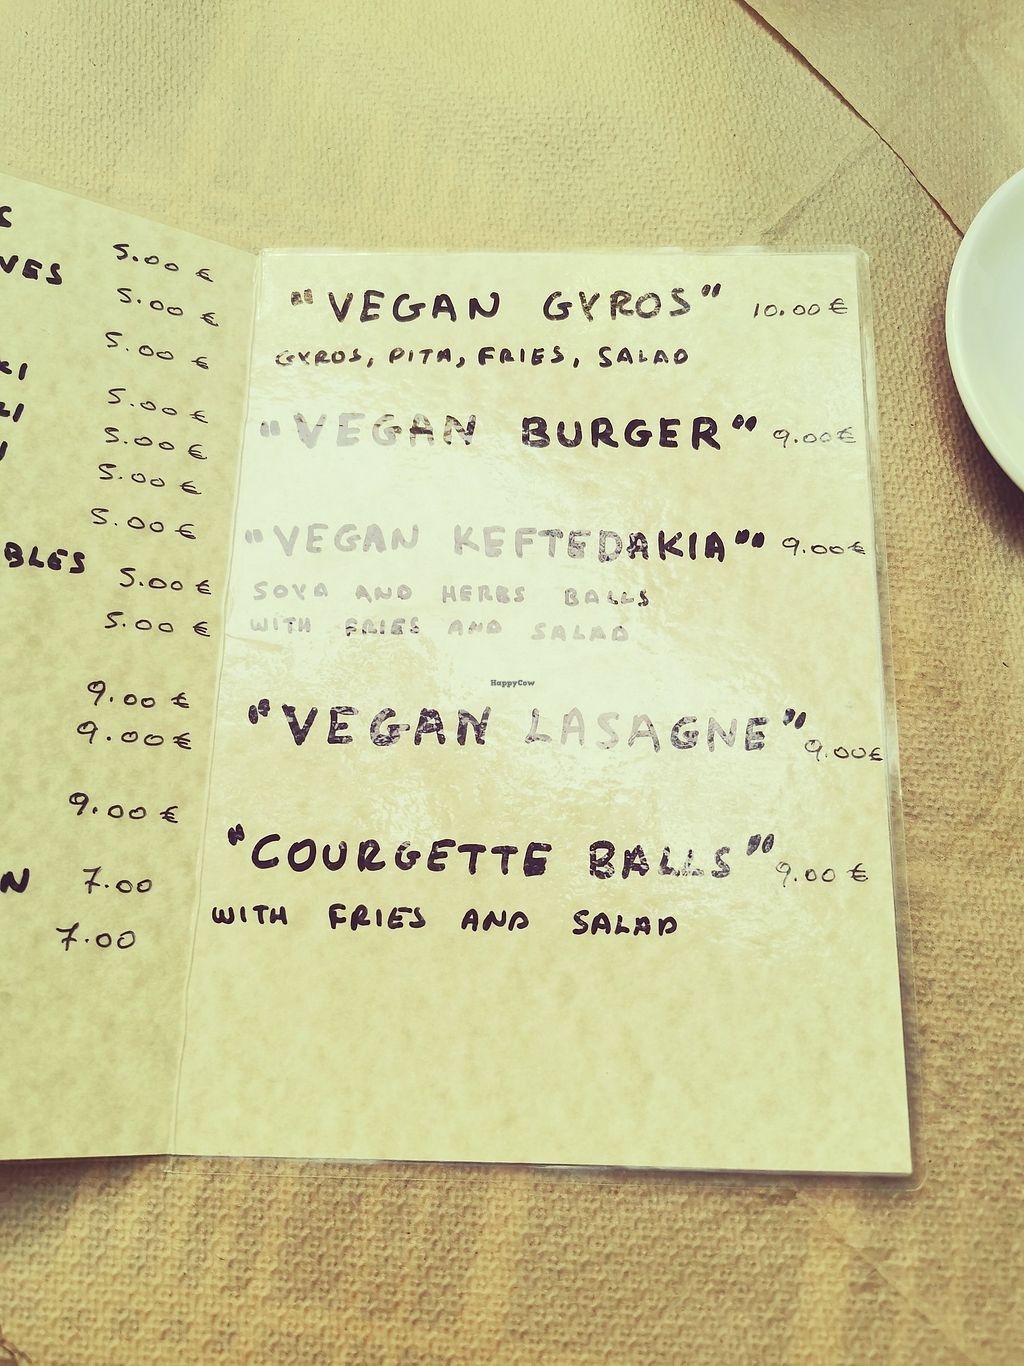 VES
BLES
N
5.00 €
5.00 €
5.00 €
5.00 €
5.00 €
5.00 €
5.00 €
5.00 €
5.00 €
9.00 €
9.00 €
9.00 €
7.00
7.00
"VEGAN GYROS" 10.00 €
GYROS, PITA, FRIES, SALAD
"VEGAN BURGER" 9.00 €
"VEGAN KEFTEDAKIA" 9.00 €
SOYA AND HERBS BALLS
WITH FRIES AND SALAD
HappyCow
"VEGAN LASAGNE" 9.00 €
"COURGETTE BALLS" 9.00 €
WITH FRIES AND SALAD